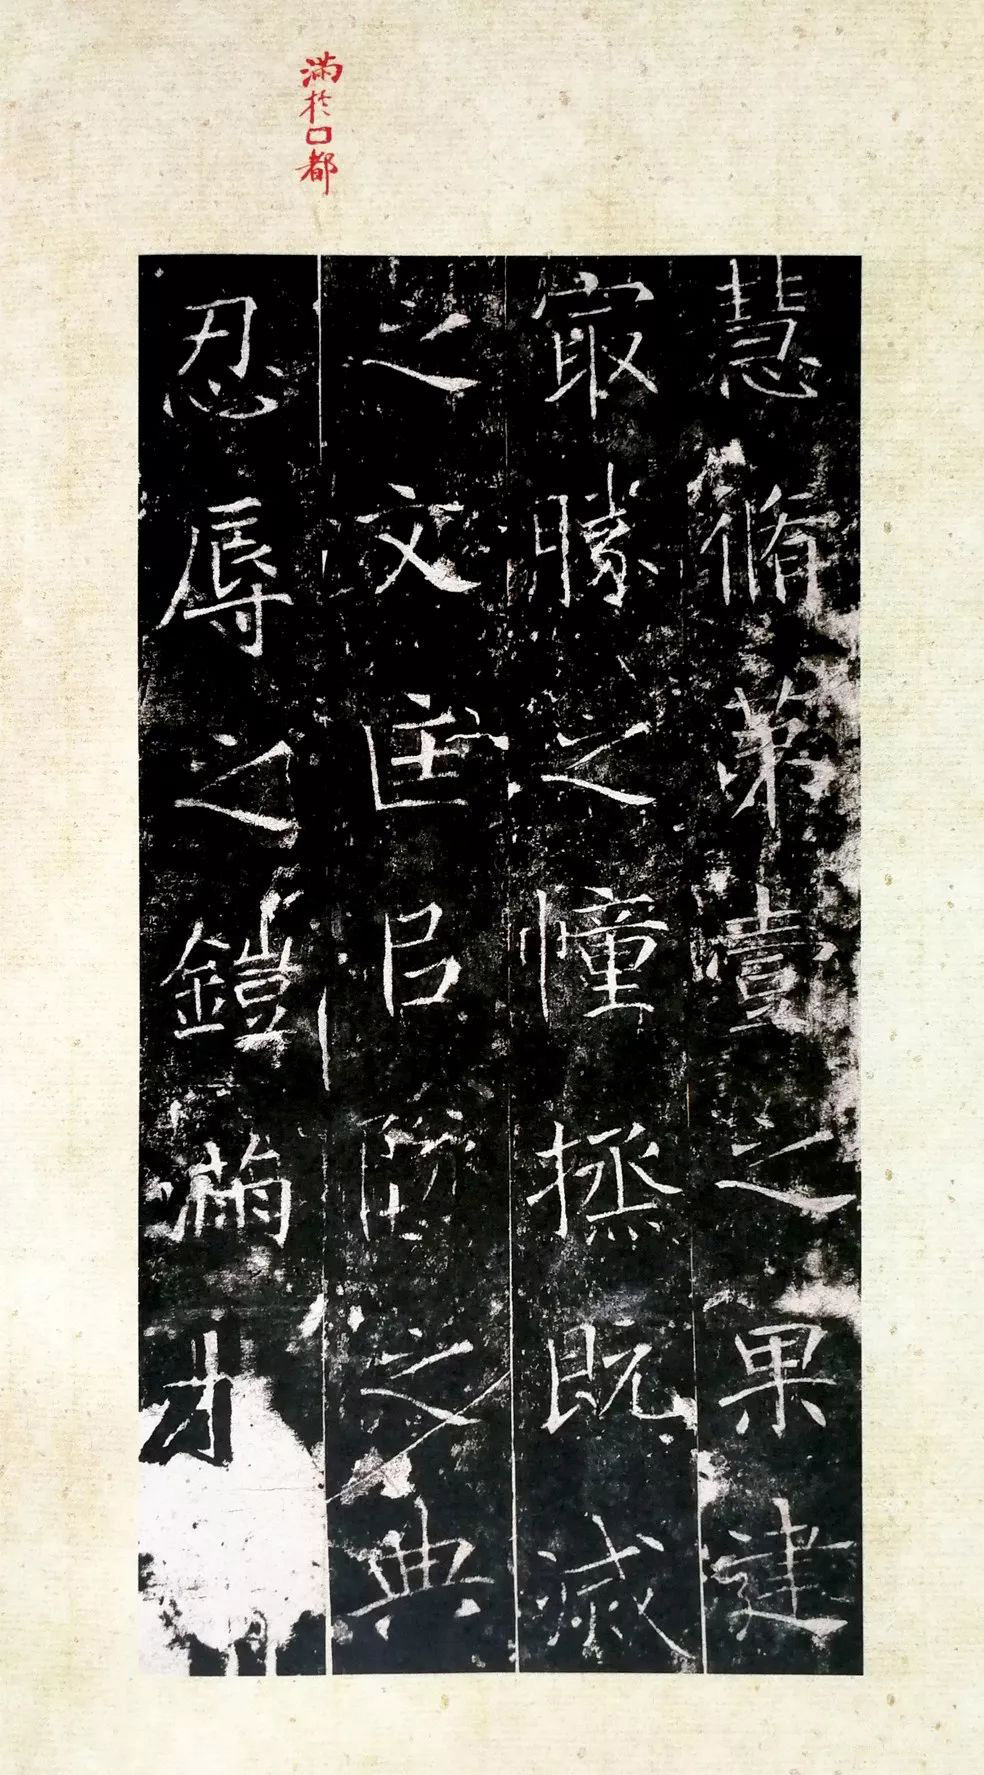 滿於口都
慧脩第壹之果建
最勝之幢拯既滅
之文匡㠯之典
忍辱之鎧滿